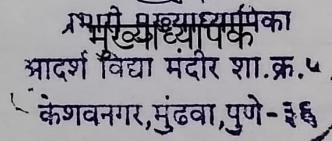 प्रभारी मुख्याध्यापिका
मुख्याध्यापक
आदर्श विद्या मंदीर शा.क्र.५
केशवनगर,मुंढवा,पुणे-३६